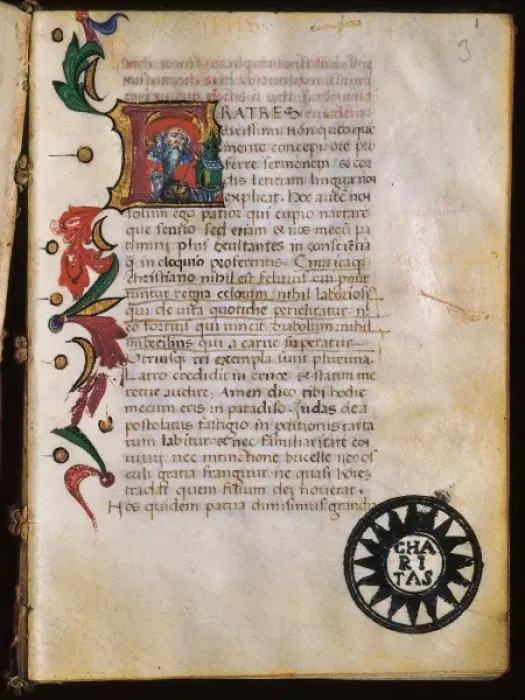 3
FRATRES
carissimi non queo que
mente concepi ore pro
ferre sermonem & cor
dis letitiam lingua nō
explicat. Hoc autē nō
solum ego patior qui cupio narrare
que sentio sed etiam & uos mecū pa
timini plus exultantes in consciētia
q̄ in eloquio proferentis.
christiano nihil est felicius cui promit
tuntur regna celorum nihil laboriosi
qui de uita quotidie periclitatur ni
fortius qui uincit diabolum nihil
imbecilius qui a carne superatur.
Utriusq; rei exempla sunt plurima.
Latro credidit in cruce & statim me
retur audire, Amen dico tibi hodie
mecum eris in paradiso. Iudas de a
postolatus fastigio in tarta
rum labitur & nec familiaritate cō
uiuii nec intinctione bucelle nec os
culi gratia frangitur ne quasi
tradat quem filium dei nouerat.
Hos quidem parua dimisimus grandia
CHA
RI
TAS